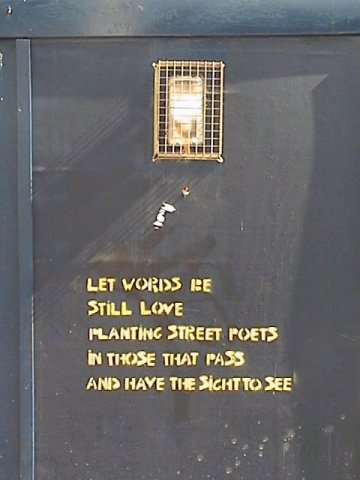 LET WORDS BE
STILL LOVE
PLANTING STREET POETS
IN THOSE THAT PASS
AND HAVE THE SIGHT TO SEE